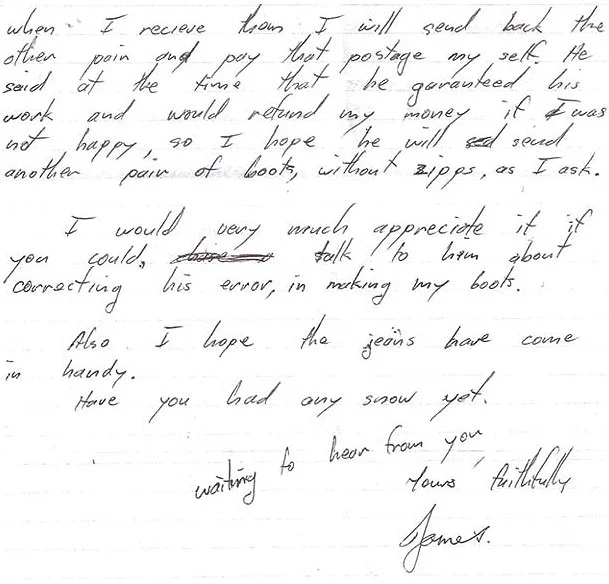 when I recieve them I will send back the
other pair and pay that postage my self. He
said at the time that he garanteed his
work and would refund my money if I was
not happy, so I hope he will send
another pair of boots, without zipps, as I ask.
I would very much appreciate it if
you could, talk to him about
correcting his error, in making my boots.
Also I hope the jeans have come
in handy.
Have you had any snow yet.
waiting to hear from you,
Yours faithfully
James.